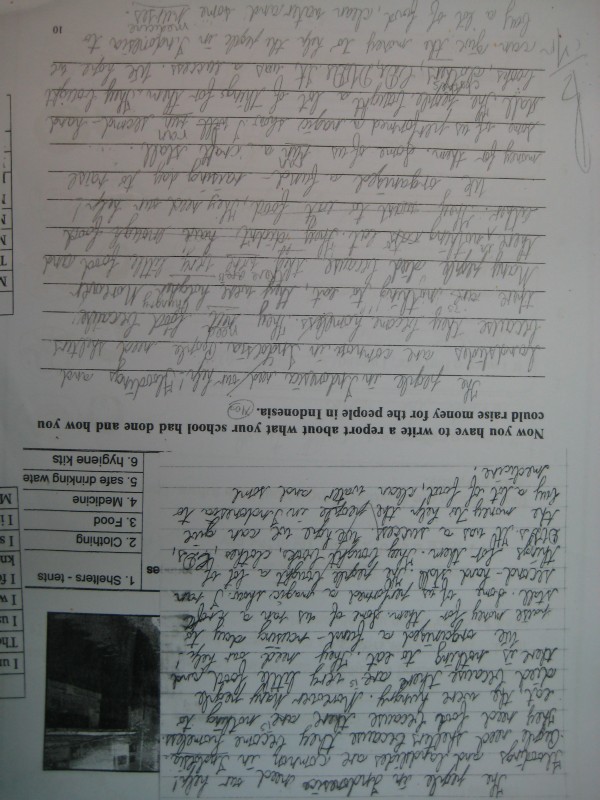 The people in Indonesia need our help!
Floodings and landslides are common in Indonesia.
People need shelters because they become homeless.
they need food because there are nothing to
eat, the were hungry. Moreover many people
died because there are very little food and
there is nothing to eat. They need our help!
We organised a fund-raising day to
raise money for them. Some of us ran a craft
stall. Some of us performed a magic show. I ran
second-hand stall. The people bought a lot of
things for them. They bought books, clothes, CDs,
DVDs. It was a success. We hope we can give
the money to help the people in Indonesia to
buy a lot of food, clean water and some
medicine.
1. Shelters - tents
2. Clothing
3. Food
4. Medicine
5. safe drinking wate
6. hygiene kits
es
I ur
The
I u
I w
I fo
kno
I s
I i
M
Now you have to write a report about what your school had done and how you
could raise money for the people in Indonesia.
The people in Indonesia need our help! Floodings and
landslides are common in Indonesia. People need shelters
because they became homeless. They need food because
there are nothing to eat, they were hungry Moreover
Many people died because they were little food and
there nothing eat. They didn't have enough food
They want to own food, they need our help!
We organised a fund-raising day to raise
money for them. Some of us ran a craft stall.
Some of us performed a magic show. I ran second-hand
stall. The people bought a lot of things for them. They bought
books, clothes, CDs, DVDs. It was a success. We hope we
can give the money to help the people in Indonesia to
buy a lot of food, clean water and some medicine
10